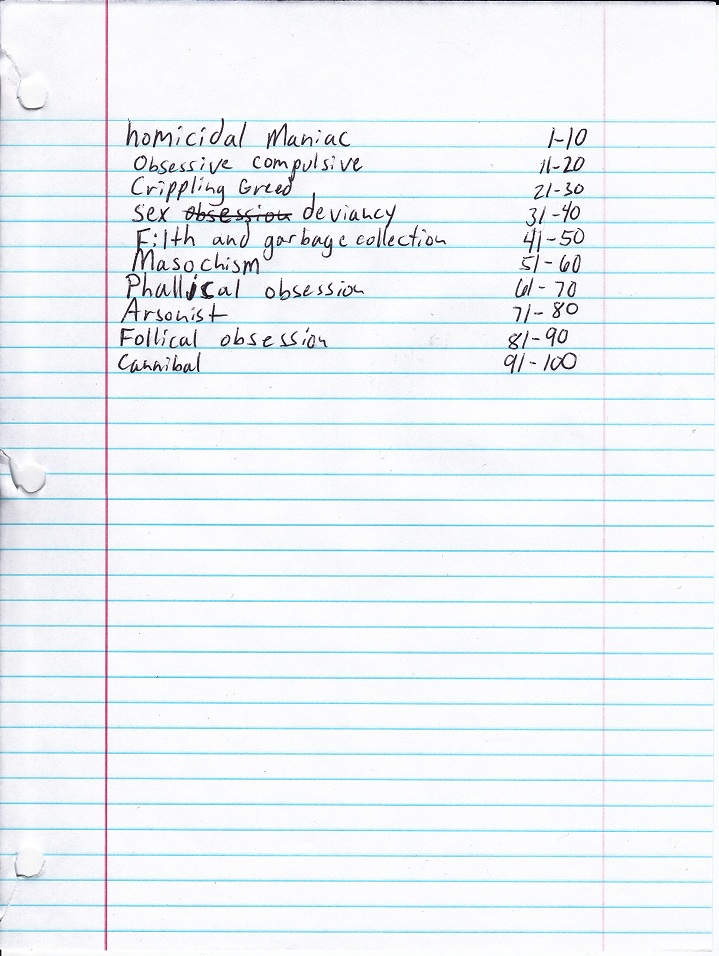 homicidal Maniac 1-10
Obsessive compulsive 11-20
Crippling Greed 21-30
Sex obsession deviancy 31-40
Filth and garbage collection 41-50
Masochism 51-60
Phallical obsession 61-70
Arsonist 71-80
Follical obsession 81-90
Cannibal 91-100